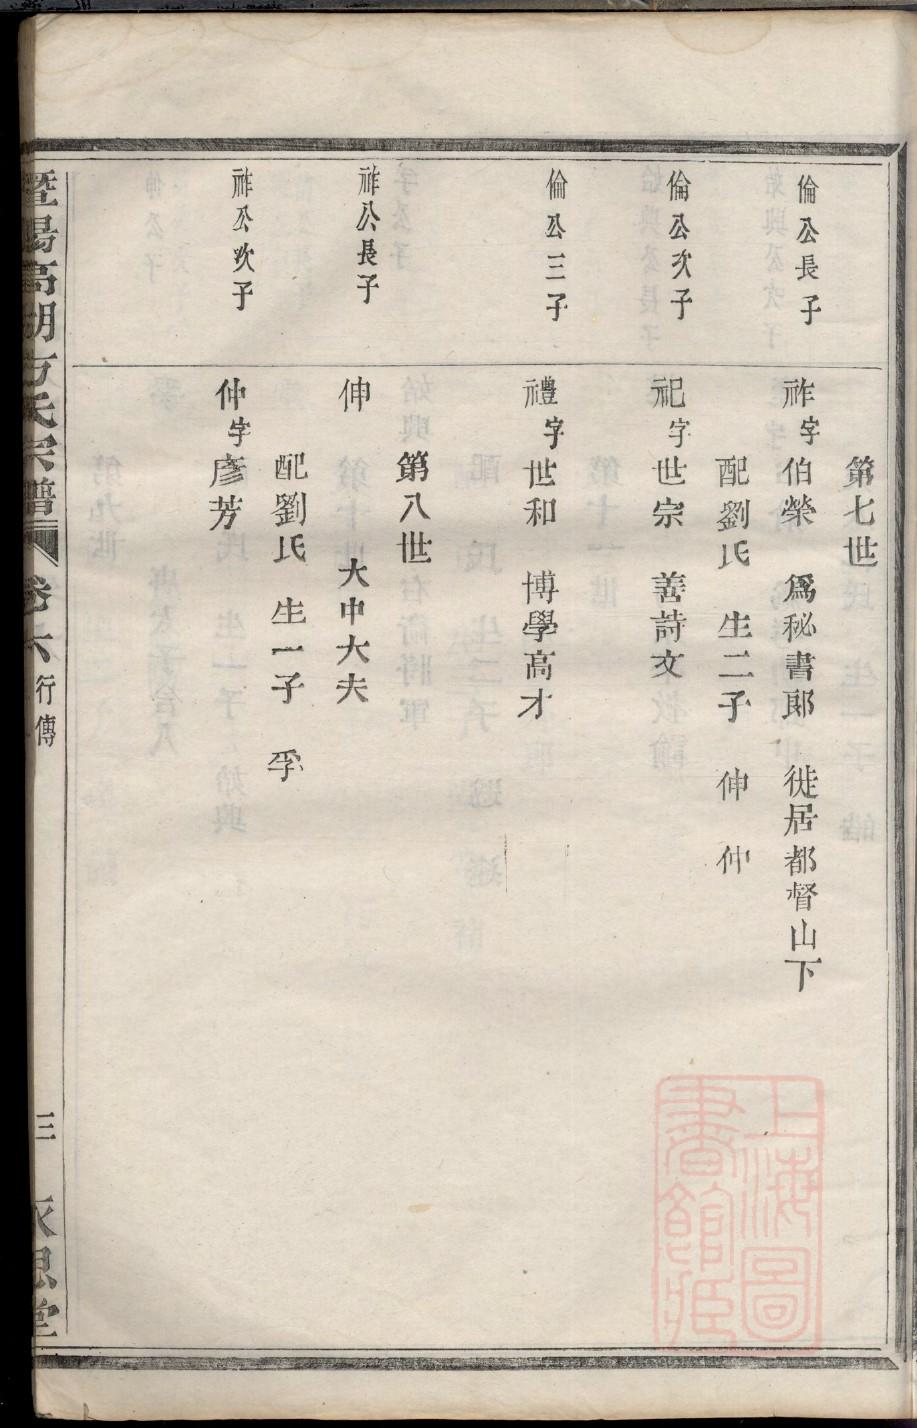 第七世
倫公長子
祚字伯榮 爲秘書郎 徙居都督山下
配劉氏 生二子 伸 仲
倫公次子
祀字世宗 善詩文
倫公三子
禮字世和 博學高才
第八世
祚公長子
伸 大中大夫
配劉氏 生一子 孚
祚公次子
仲字彥芳
暨陽高湖方氏宗譜 卷六 行傳 三 永思堂
上海圖
書館藏